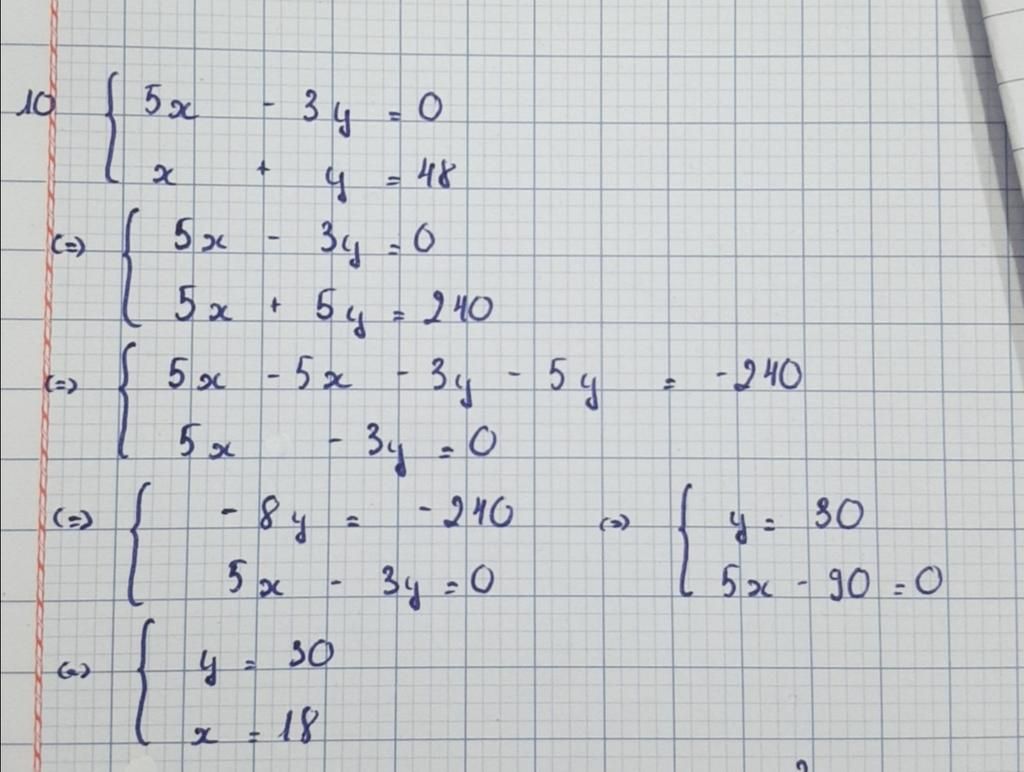 10 { 5x - 3y = 0
x + y = 48
(=) { 5x - 3y = 0
5x + 5y = 240
(=) { 5x - 5x - 3y - 5y = -240
5x - 3y = 0
(=) { - 8y = -240 (=) { y = 30
5x - 3y = 0 5x - 90 = 0
(=) { y = 30
x = 18